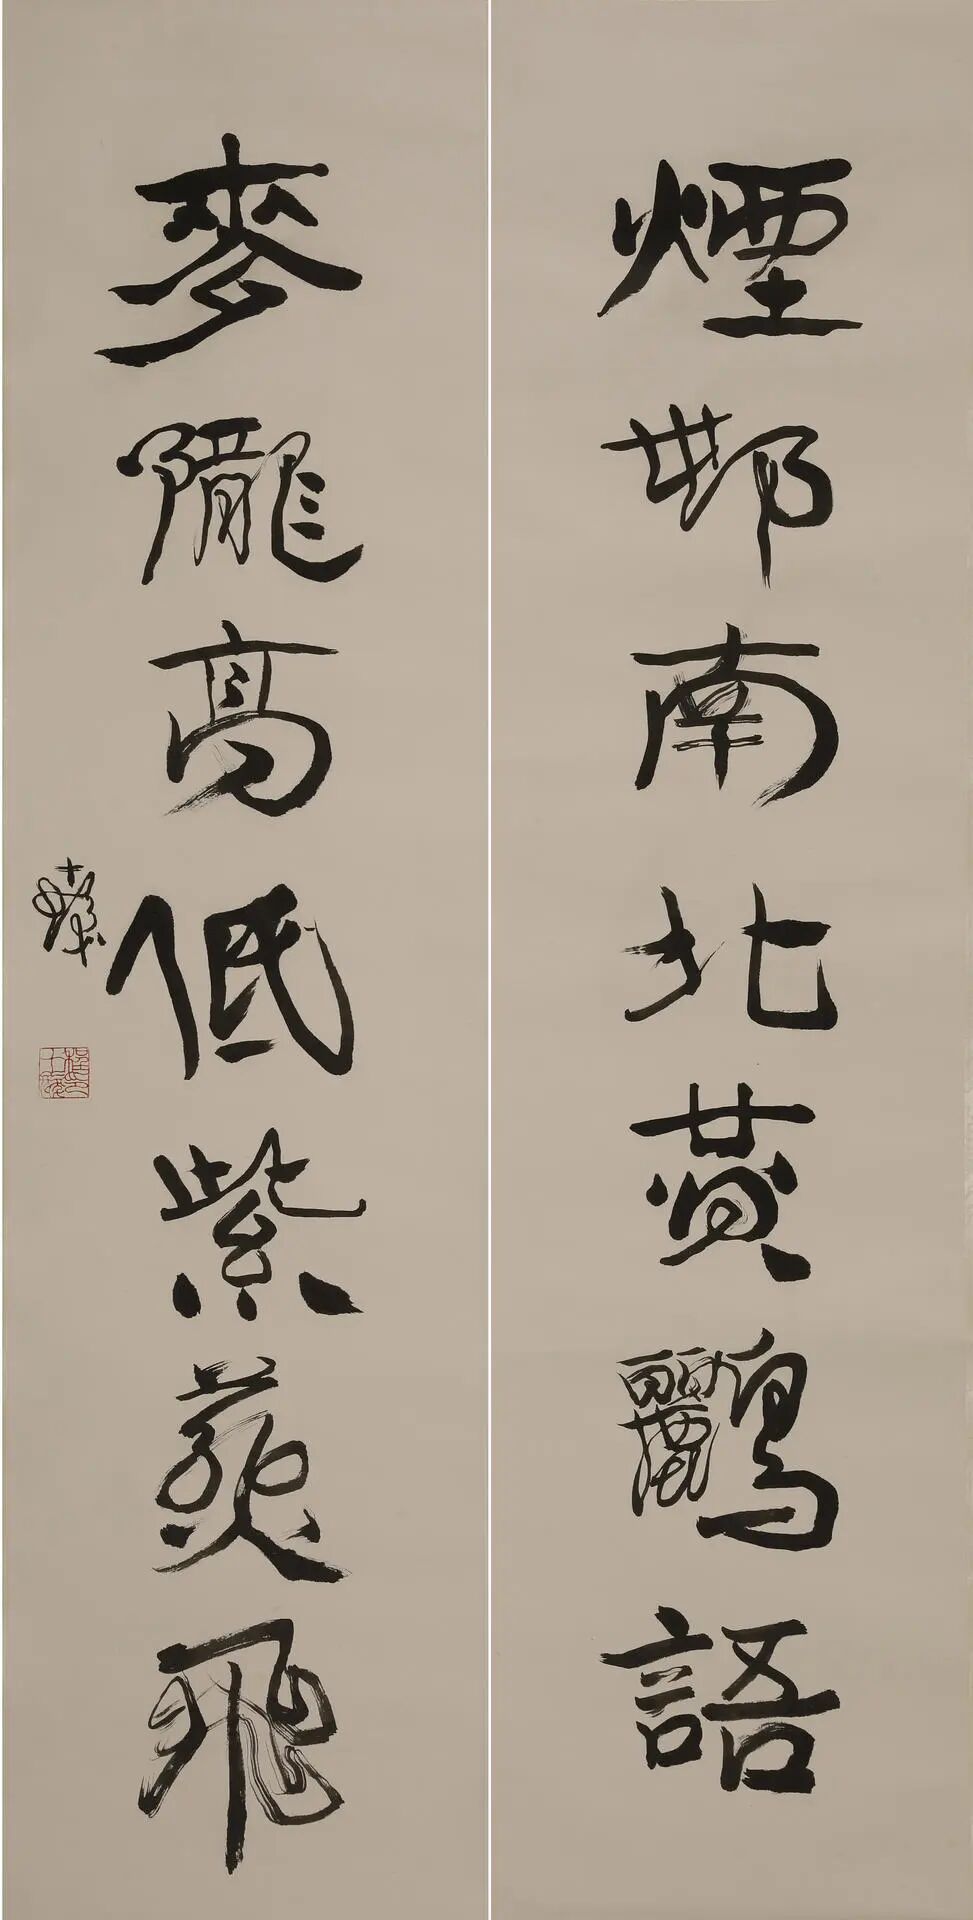 煙邨南北黄鸝語
麥隴高低紫燕飛
十髮